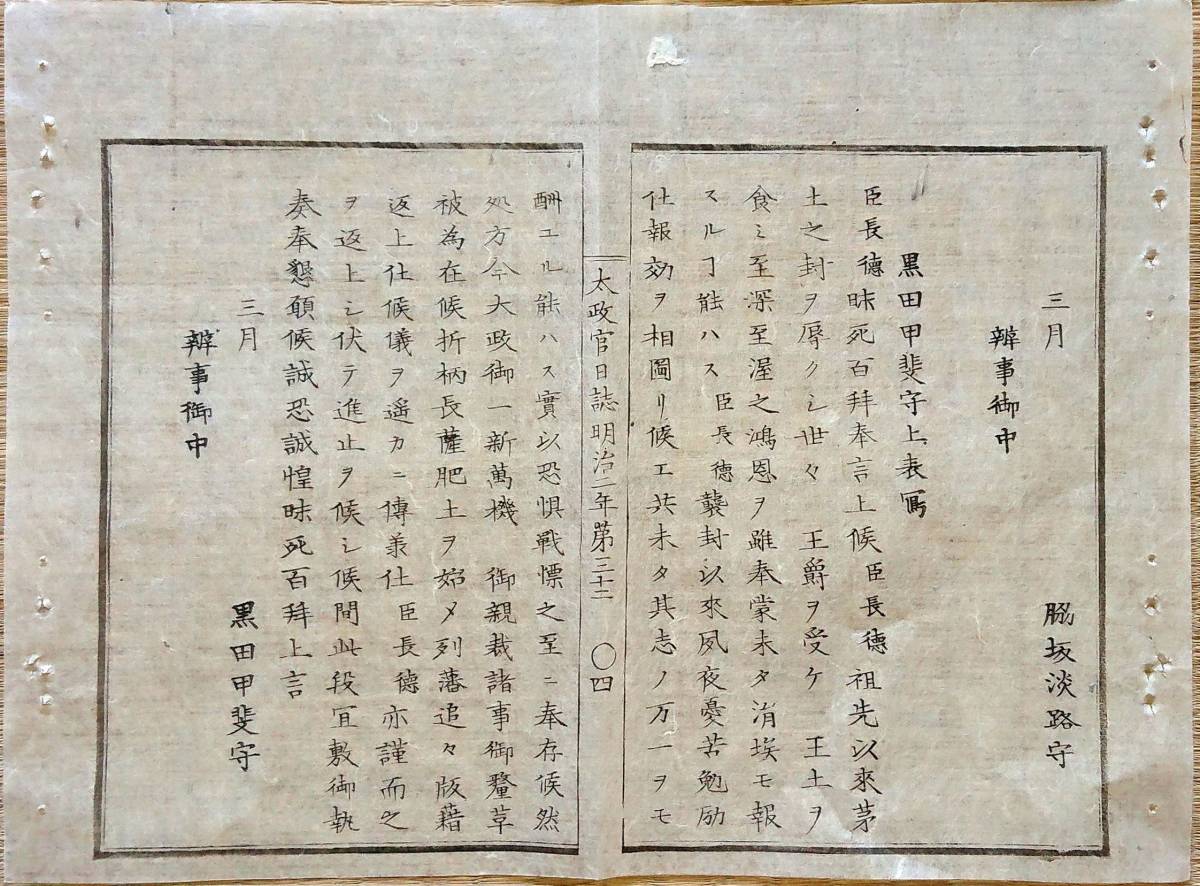 三月　脇坂淡路守
辨事御中
黒田甲斐守上表冩
臣長德昧死百拜奉言上候臣長德祖先以來茅
土之封ヲ辱クシ世々　王爵ヲ受ケ　王土ヲ
食ミ至深至渥之鴻恩ヲ雖奉蒙未タ涓埃モ報
スルヿ能ハス臣長德襲封以來夙夜憂苦勉励
仕報効ヲ相圖リ候エ共未タ其志ノ万一ヲモ
太政官日誌明治二年第三十二　〇四
酬エル能ハス實以恐惧戰慄之至ニ奉存候然
処方今大政御一新萬機　御親裁諸事御釐革
被為在候折柄長薩肥土ヲ始メ列藩追々版藉
返上仕候儀ヲ遥カニ傳羕仕臣長德亦謹而之
ヲ返上シ伏テ進止ヲ候シ候間此段冝敷御執
奏奉懇願候誠恐誠惶昧死百拜上言
三月　黒田甲斐守
辨事御中